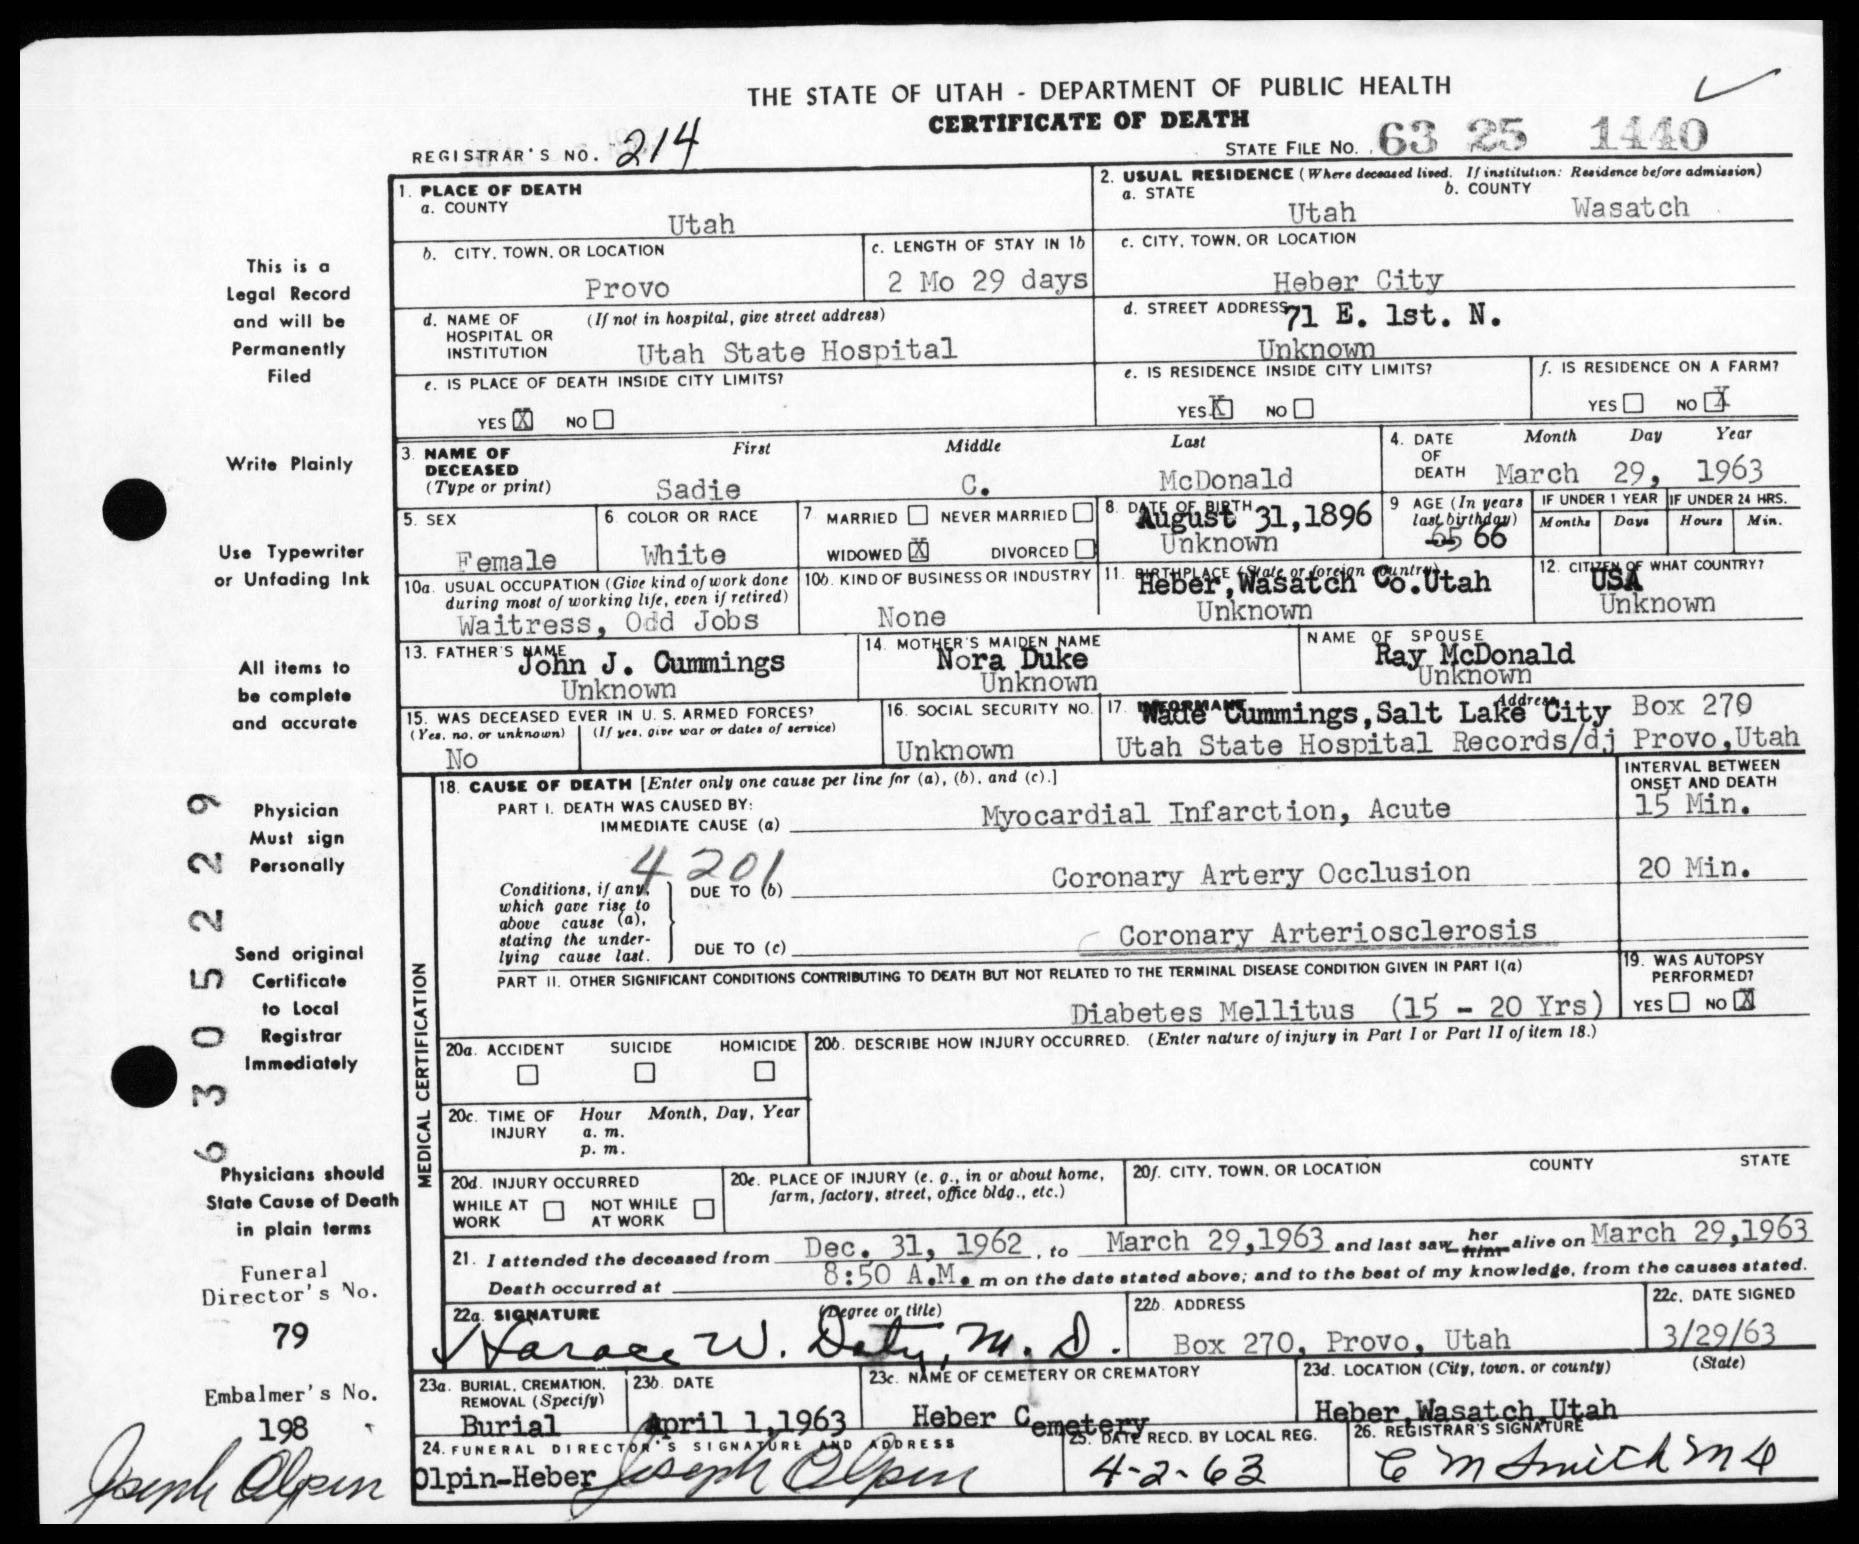 THE STATE OF UTAH - DEPARTMENT OF PUBLIC HEALTH
CERTIFICATE OF DEATH
REGISTRAR'S NO. 214
STATE FILE NO. 63 25 1440
1. PLACE OF DEATH
a. COUNTY
Utah
2. USUAL RESIDENCE (Where deceased lived. If institution: Residence before admission)
a. STATE
Utah
b. COUNTY
Wasatch
b. CITY, TOWN, OR LOCATION
Provo
c. LENGTH OF STAY IN 1b
2 Mo 29 days
c. CITY, TOWN, OR LOCATION
Heber City
d. NAME OF HOSPITAL OR INSTITUTION
(If not in hospital, give street address)
Utah State Hospital
d. STREET ADDRESS
71 E. 1st. N.
Unknown
e. IS PLACE OF DEATH INSIDE CITY LIMITS?
YES X NO
e. IS RESIDENCE INSIDE CITY LIMITS?
YES X NO
f. IS RESIDENCE ON A FARM?
YES NO X
3. NAME OF DECEASED
(Type or print)
First Middle Last
Sadie C. McDonald
4. DATE OF DEATH
Month Day Year
March 29, 1963
5. SEX
Female
6. COLOR OR RACE
White
7. MARRIED NEVER MARRIED
WIDOWED X DIVORCED
8. DATE OF BIRTH
August 31,1896
Unknown
9 AGE (In years last birthday)
65 66
IF UNDER 1 YEAR
Months Days
IF UNDER 24 HRS.
Hours Min.
10a. USUAL OCCUPATION (Give kind of work done during most of working life, even if retired)
Waitress, Odd Jobs
10b. KIND OF BUSINESS OR INDUSTRY
None
11. BIRTHPLACE (State or foreign country)
Heber,Wasatch Co.Utah
Unknown
12. CITIZEN OF WHAT COUNTRY?
USA
Unknown
13. FATHER'S NAME
John J. Cummings
Unknown
14. MOTHER'S MAIDEN NAME
Nora Duke
Unknown
NAME OF SPOUSE
Ray McDonald
Unknown
15. WAS DECEASED EVER IN U. S. ARMED FORCES?
(Yes, no, or unknown) (If yes, give war or dates of service)
No
16. SOCIAL SECURITY NO.
Unknown
17. INFORMANT Address
Wade Cummings,Salt Lake City Box 270
Utah State Hospital Records/dj Provo,Utah
MEDICAL CERTIFICATION
18. CAUSE OF DEATH [Enter only one cause per line for (a), (b), and (c).]
INTERVAL BETWEEN ONSET AND DEATH
PART I. DEATH WAS CAUSED BY:
IMMEDIATE CAUSE (a) Myocardial Infarction, Acute 15 Min.
4201
Conditions, if any, which gave rise to above cause (a), stating the under-lying cause last.
DUE TO (b) Coronary Artery Occlusion 20 Min.
DUE TO (c) Coronary Arteriosclerosis
PART II. OTHER SIGNIFICANT CONDITIONS CONTRIBUTING TO DEATH BUT NOT RELATED TO THE TERMINAL DISEASE CONDITION GIVEN IN PART I(a)
Diabetes Mellitus (15 - 20 Yrs)
19. WAS AUTOPSY PERFORMED?
YES NO X
20a. ACCIDENT SUICIDE HOMICIDE
20b. DESCRIBE HOW INJURY OCCURRED. (Enter nature of injury in Part I or Part II of item 18.)
20c. TIME OF INJURY
Hour Month, Day, Year
a. m.
p. m.
20d. INJURY OCCURRED
WHILE AT WORK NOT WHILE AT WORK
20e. PLACE OF INJURY (e. g., in or about home, farm, factory, street, office bldg., etc.)
20f. CITY, TOWN, OR LOCATION COUNTY STATE
21. I attended the deceased from Dec. 31, 1962, to March 29,1963 and last saw her him alive on March 29,1963
Death occurred at 8:50 A.M. m on the date stated above; and to the best of my knowledge, from the causes stated.
22a. SIGNATURE (Degree or title)
Horace W. Doty, M. D.
22b. ADDRESS
Box 270, Provo, Utah
22c. DATE SIGNED
3/29/63
23a. BURIAL, CREMATION, REMOVAL (Specify)
Burial
23b. DATE
April 1,1963
23c. NAME OF CEMETERY OR CREMATORY
Heber Cemetery
23d. LOCATION (City, town, or county) (State)
Heber,Wasatch,Utah
24. FUNERAL DIRECTOR'S SIGNATURE AND ADDRESS
Olpin-Heber Joseph Olpin
25. DATE RECD. BY LOCAL REG.
4-2-63
26. REGISTRAR'S SIGNATURE
C M Smith M D
This is a
Legal Record
and will be
Permanently
Filed
Write Plainly
Use Typewriter
or Unfading Ink
All items to
be complete
and accurate
Physician
Must sign
Personally
Send original
Certificate
to Local
Registrar
Immediately
Physicians should
State Cause of Death
in plain terms
Funeral
Director's No.
79
Embalmer's No.
198
Joseph Olpin
63052229